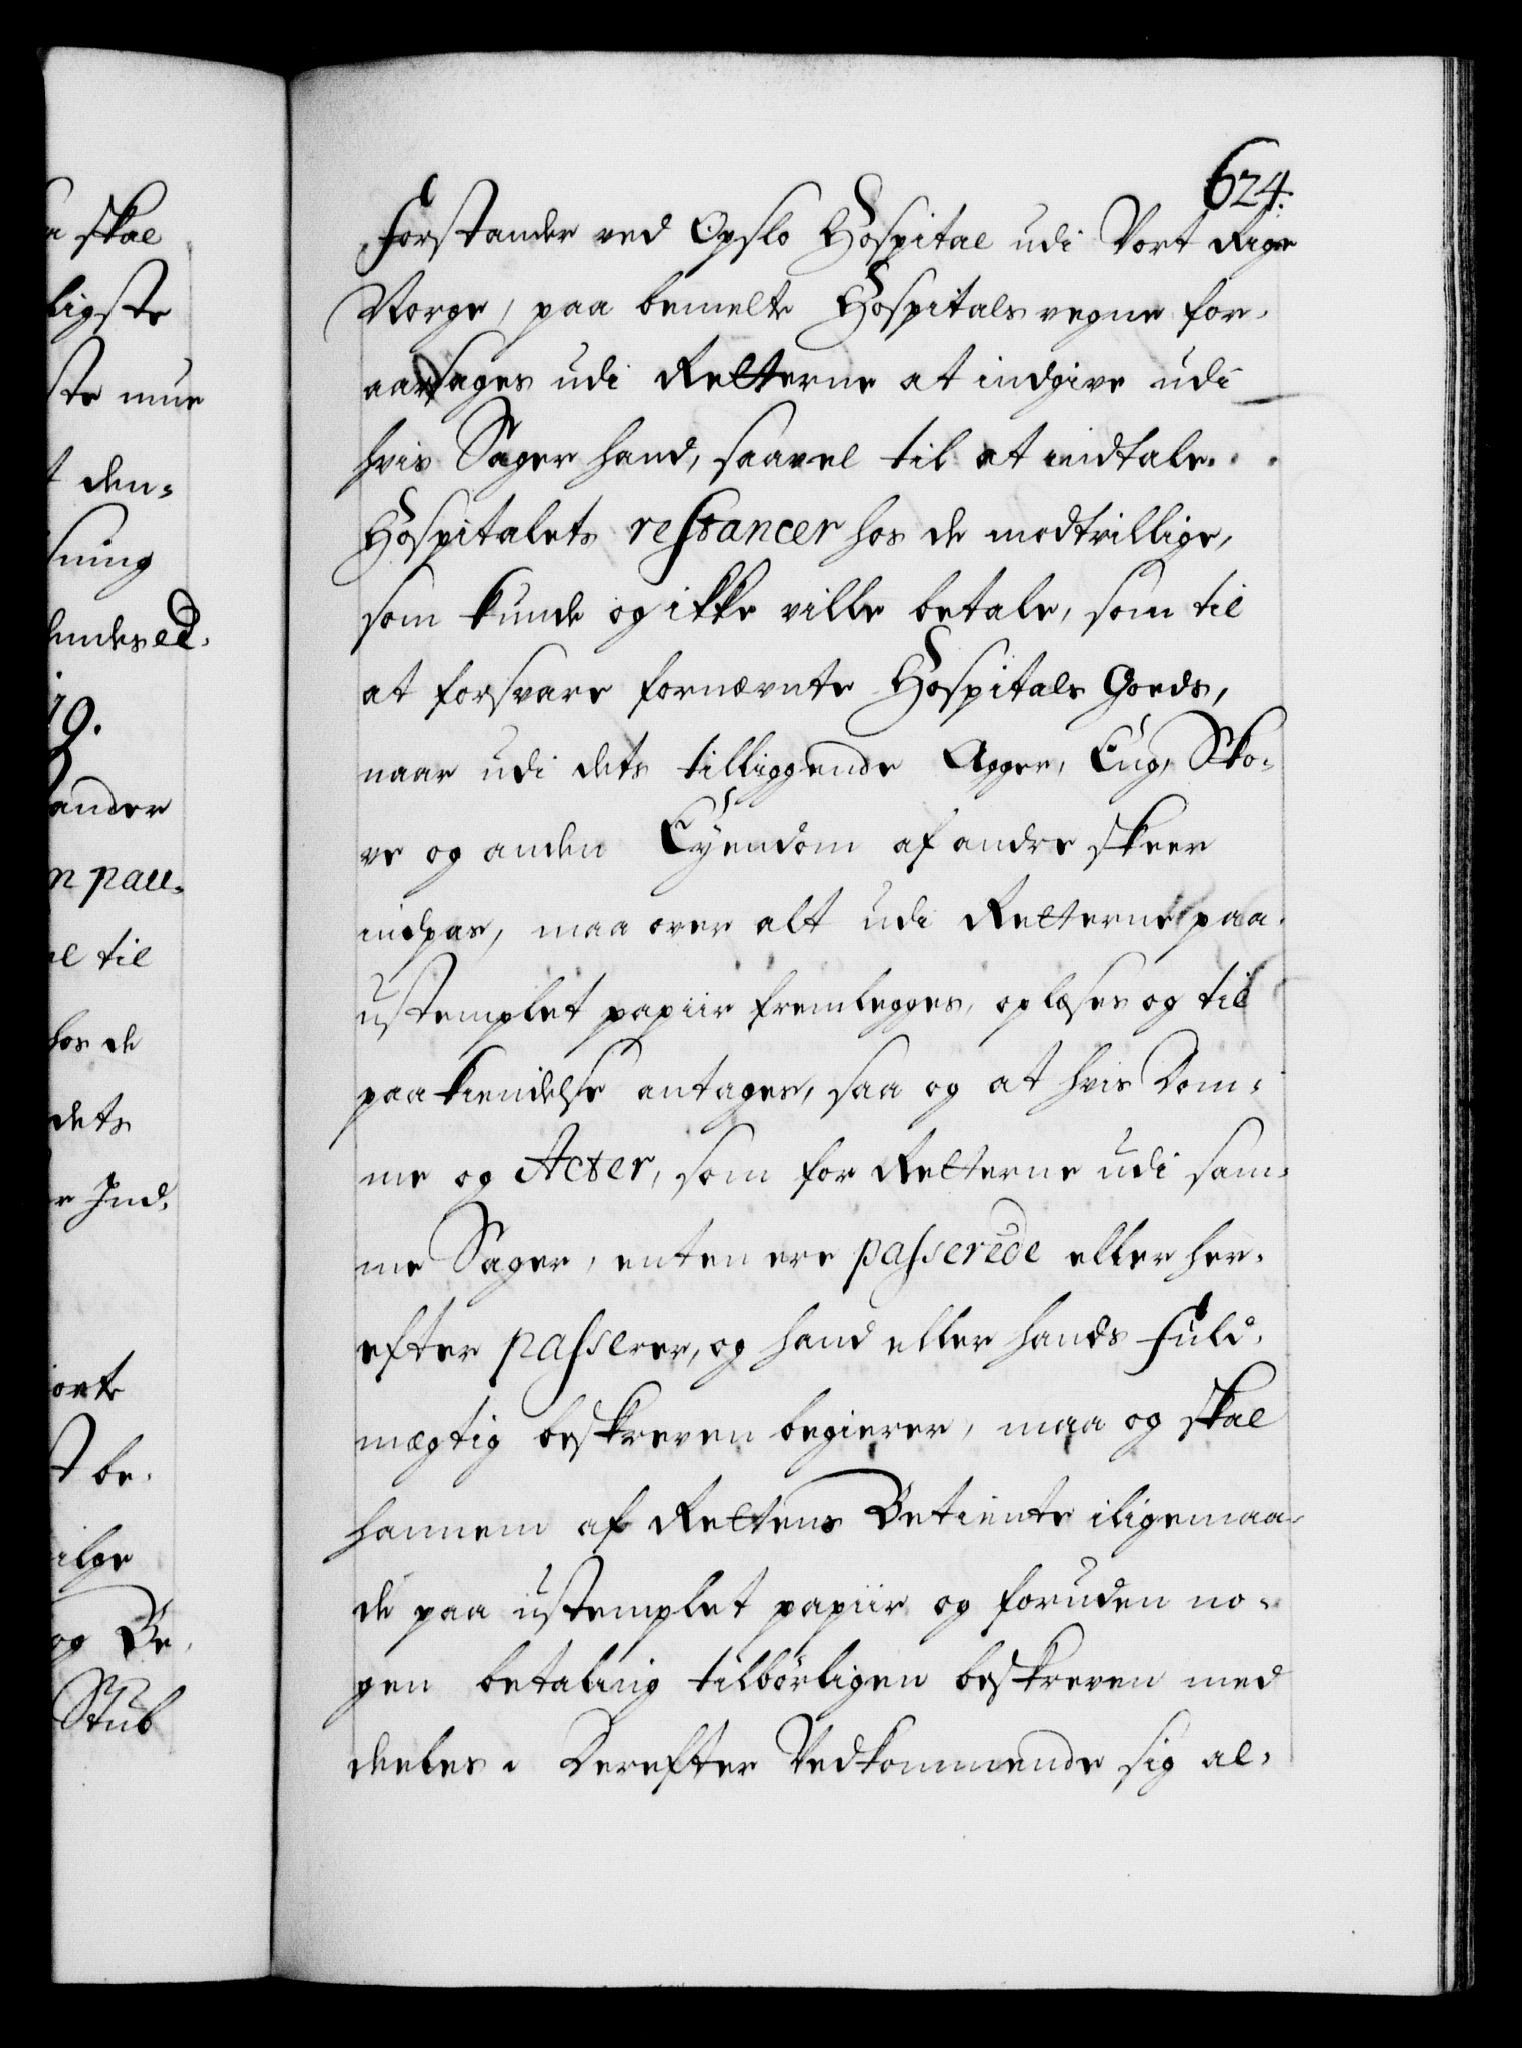 624.
Forstander ved Opslo Hospital udi Vort Rige
Norge, paa bemelte Hospitals vegne for-
aarsages udi Retterne at indgive udi
hvis Sager hand, saavel til at indtale
Hospitalets restancer hos de modtvillige,
som kunde og ikke ville betale, som til
at forsvare fornævnte Hospitals Goeds,
naar udi dets tilliggende Agger, Eng, Sko-
ve og anden Eyendom af andre skeer
indpas, maa over alt udi Retterne paa
ustemplet papiir fremlegges, oplæses og til
paakiendelse antages, saa og at hvis Dom-
me og Acter, som for Retterne udi sam-
me Sager, enten ere passerede eller her-
efter passerer, og hand eller hands Fuld-
mægtig beskreven begierer, maa og skal
hannem af Rettens Betiente iligemaa-
de paa ustemplet papiir og foruden no-
gen betaling tilbørligen beskreven med
deeles. Derefter Vedkommende sig al-
a skal
ligste
ste mue
t den-
ning
19.
ander
n pau-
el til
hos de
dets
r Ind-
t be-
og Be-
Stub